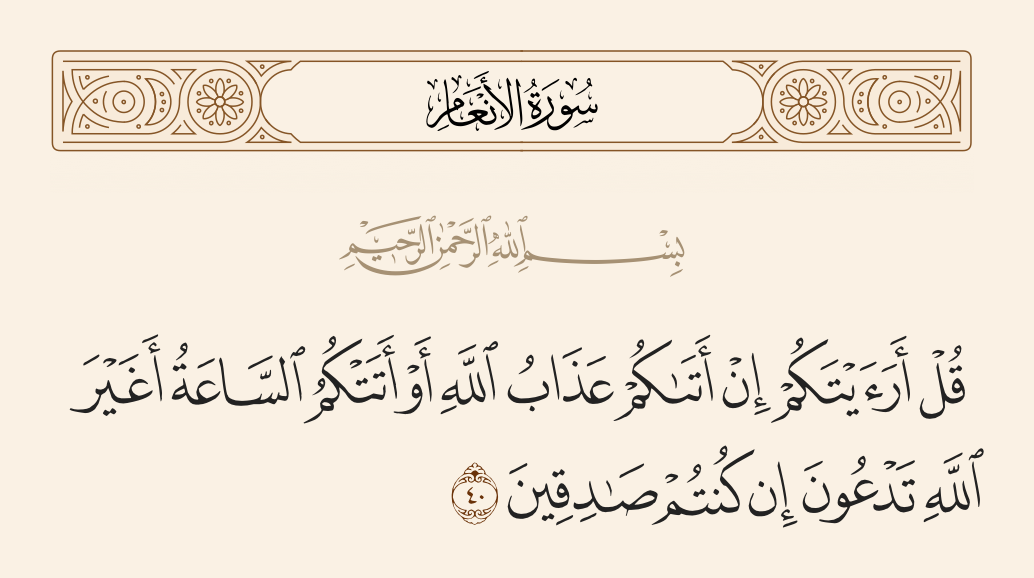 سُورَةُ الأَنْعَامِ
بِسْمِ ٱللَّهِ ٱلرَّحْمَٰنِ ٱلرَّحِيمِ
قُلْ أَرَءَيْتَكُمْ إِنْ أَتَىٰكُمْ عَذَابُ ٱللَّهِ أَوْ أَتَتْكُمُ ٱلسَّاعَةُ أَغَيْرَ
ٱللَّهِ تَدْعُونَ إِن كُنتُمْ صَـٰدِقِينَ ٤٠